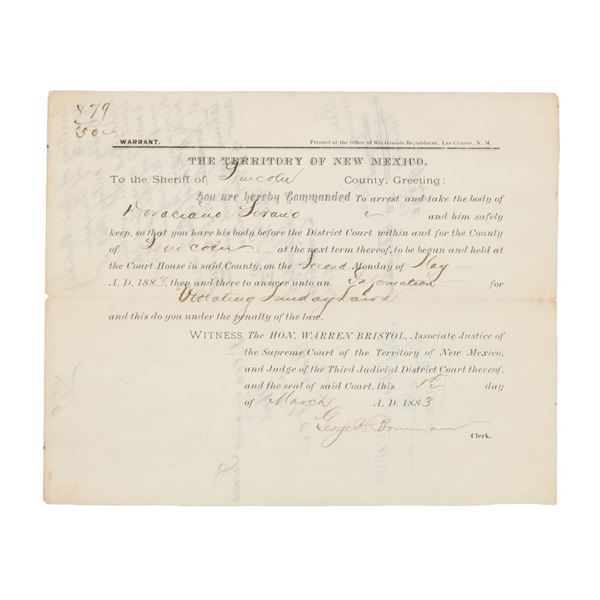 479
50
WARRANT. Printed at the Office of Rio Grande Republican, Las Cruces, N. M.
THE TERRITORY OF NEW MEXICO.
To the Sheriff of Lincoln County, Greeting:
You are hereby Commanded To arrest and take the body of
Donaciano Serano and him safely
keep, so that you have his body before the District Court within and for the County
of Lincoln at the next term thereof, to be begun and held at
the Court House in said County, on the Second Monday of May
A. D. 188 , then and there to answer unto an Information for
Violating Sunday Laws
and this do you under the penalty of the law.
WITNESS The HON. WARREN BRISTOL, Associate Justice of
the Supreme Court of the Territory of New Mexico,
and Judge of the Third Judicial District Court thereof,
and the seal of said Court, this day
of March A. D. 1883
George R Bowman
Clerk.